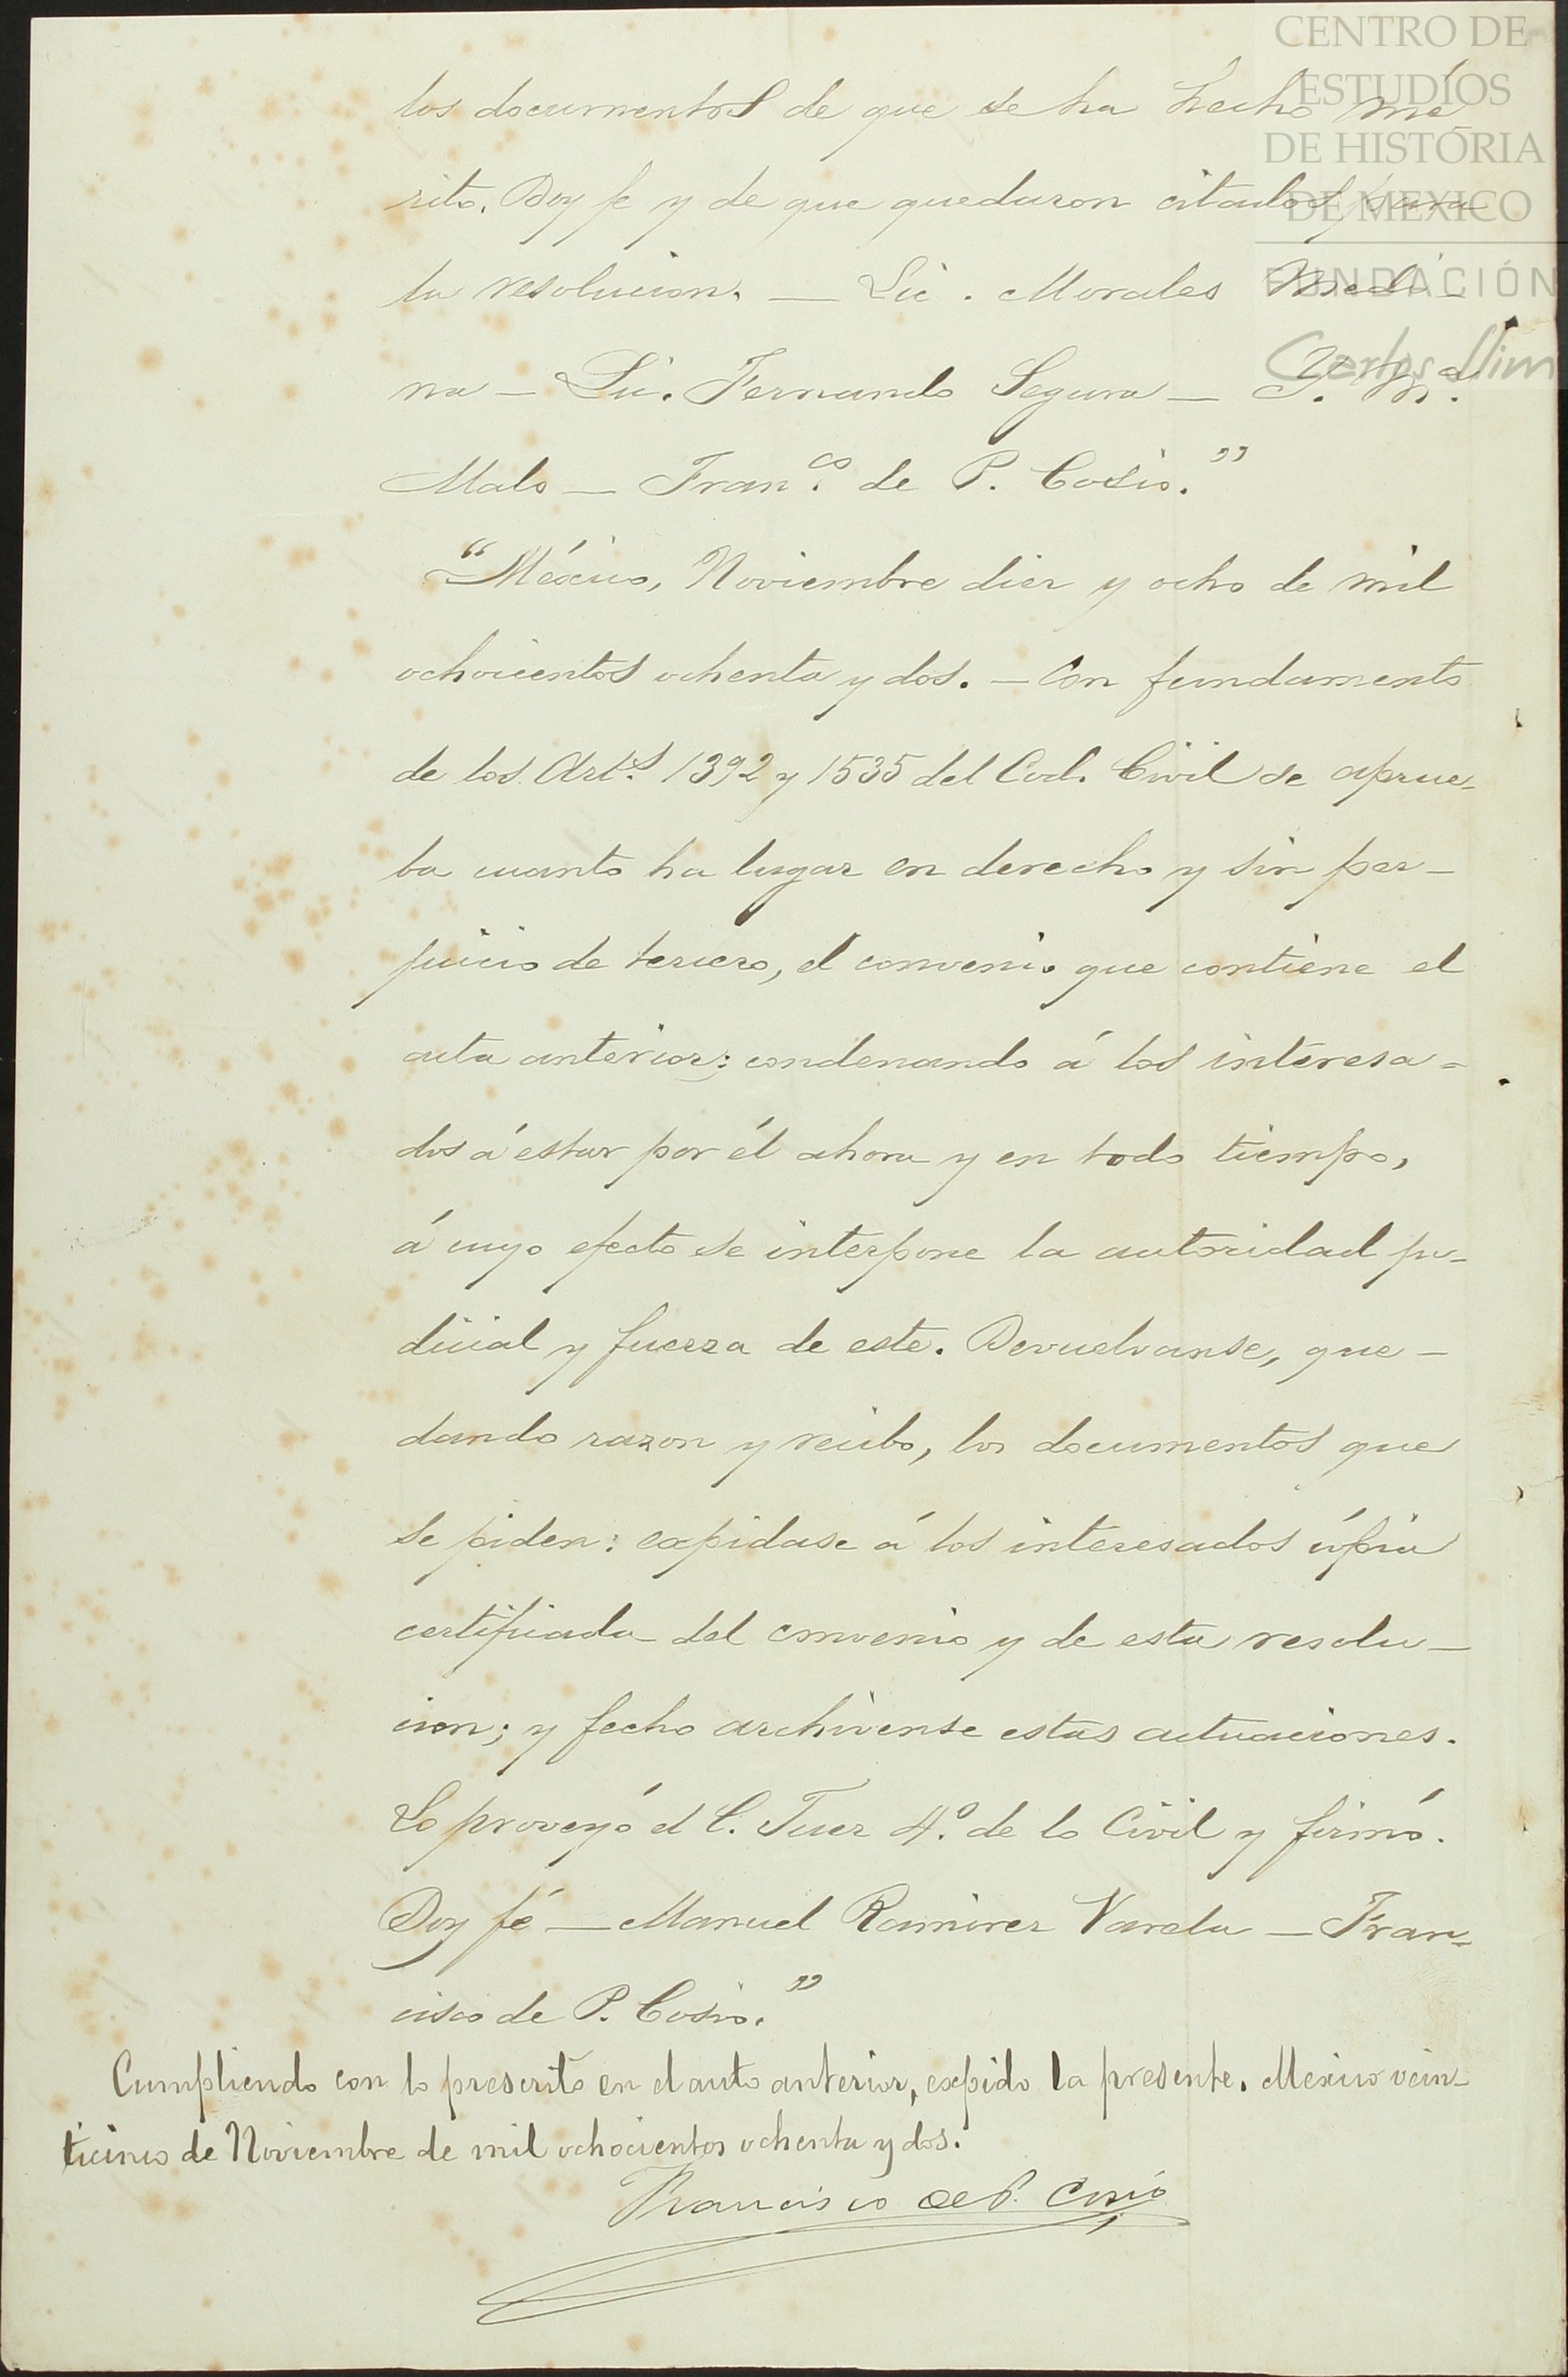 CENTRO DE
ESTUDIOS
DE HISTORIA
DE MEXICO
FUNDACIÓN
Carlos Slim
los documentos de que se ha hecho mé
rito. Doy fe y de que quedaron citados para
la resolucion. — Lic. Morales Medi-
na — Lic. Fernando Segura — J. M.ª
Malo — Fran.co de P. Cosio."
"México, Noviembre diez y ocho de mil
ochocientos ochenta y dos. — Con fundamento
de los Art.s 1392 y 1535 del Cod. Civil se aprue-
ba cuanto ha lugar en derecho y sin per-
juicio de tercero, el convenio que contiene el
acta anterior; condenando á los interesa-
dos á estar por él ahora y en todo tiempo,
á cuyo efecto se interpone la autoridad ju-
dicial y fuerza de este. Devuelvanse, que-
dando razon y recibo, los documentos que
se piden: expidase á los interesados cópia
certificada del convenio y de esta resolu-
cion; y fecho archivense estas actuaciones.
Lo proveyó el C. Juez 4.º de lo Civil y firmó.
Doy fé — Manuel Ramirez Varela — Fran-
cisco de P. Cosio."
Cumpliendo con lo prescrito en el auto anterior, expido la presente. Mexico vein-
ticinco de Noviembre de mil ochocientos ochenta y dos.
Francisco de P. Cosió